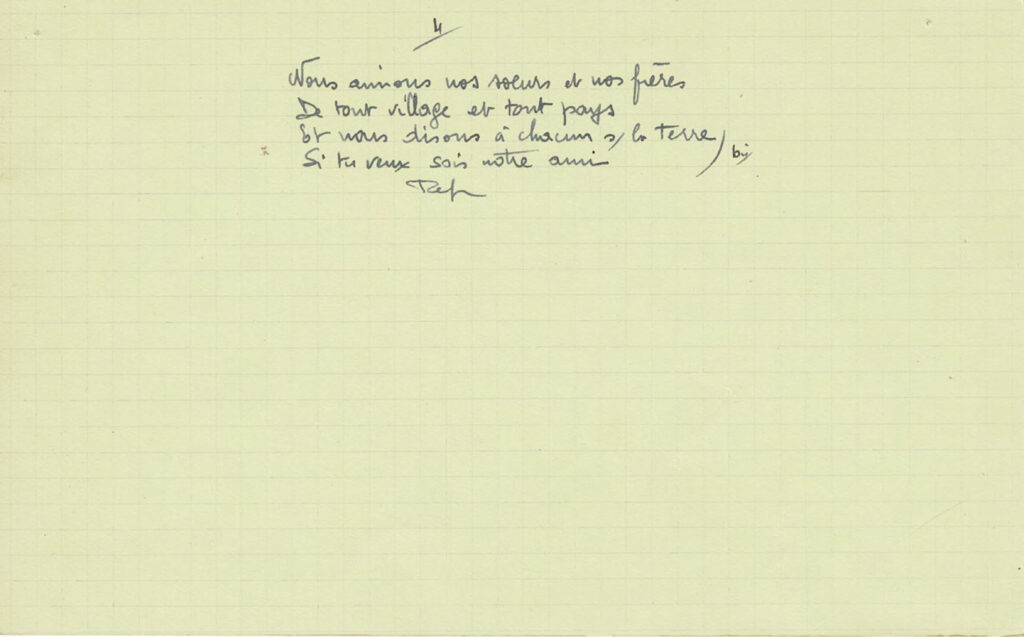 4
Nous aimons nos soeurs et nos frères
De tout village et tout pays
Et nous disons à chacun s/ la terre
Si tu veux sois notre ami ) bis
Ref